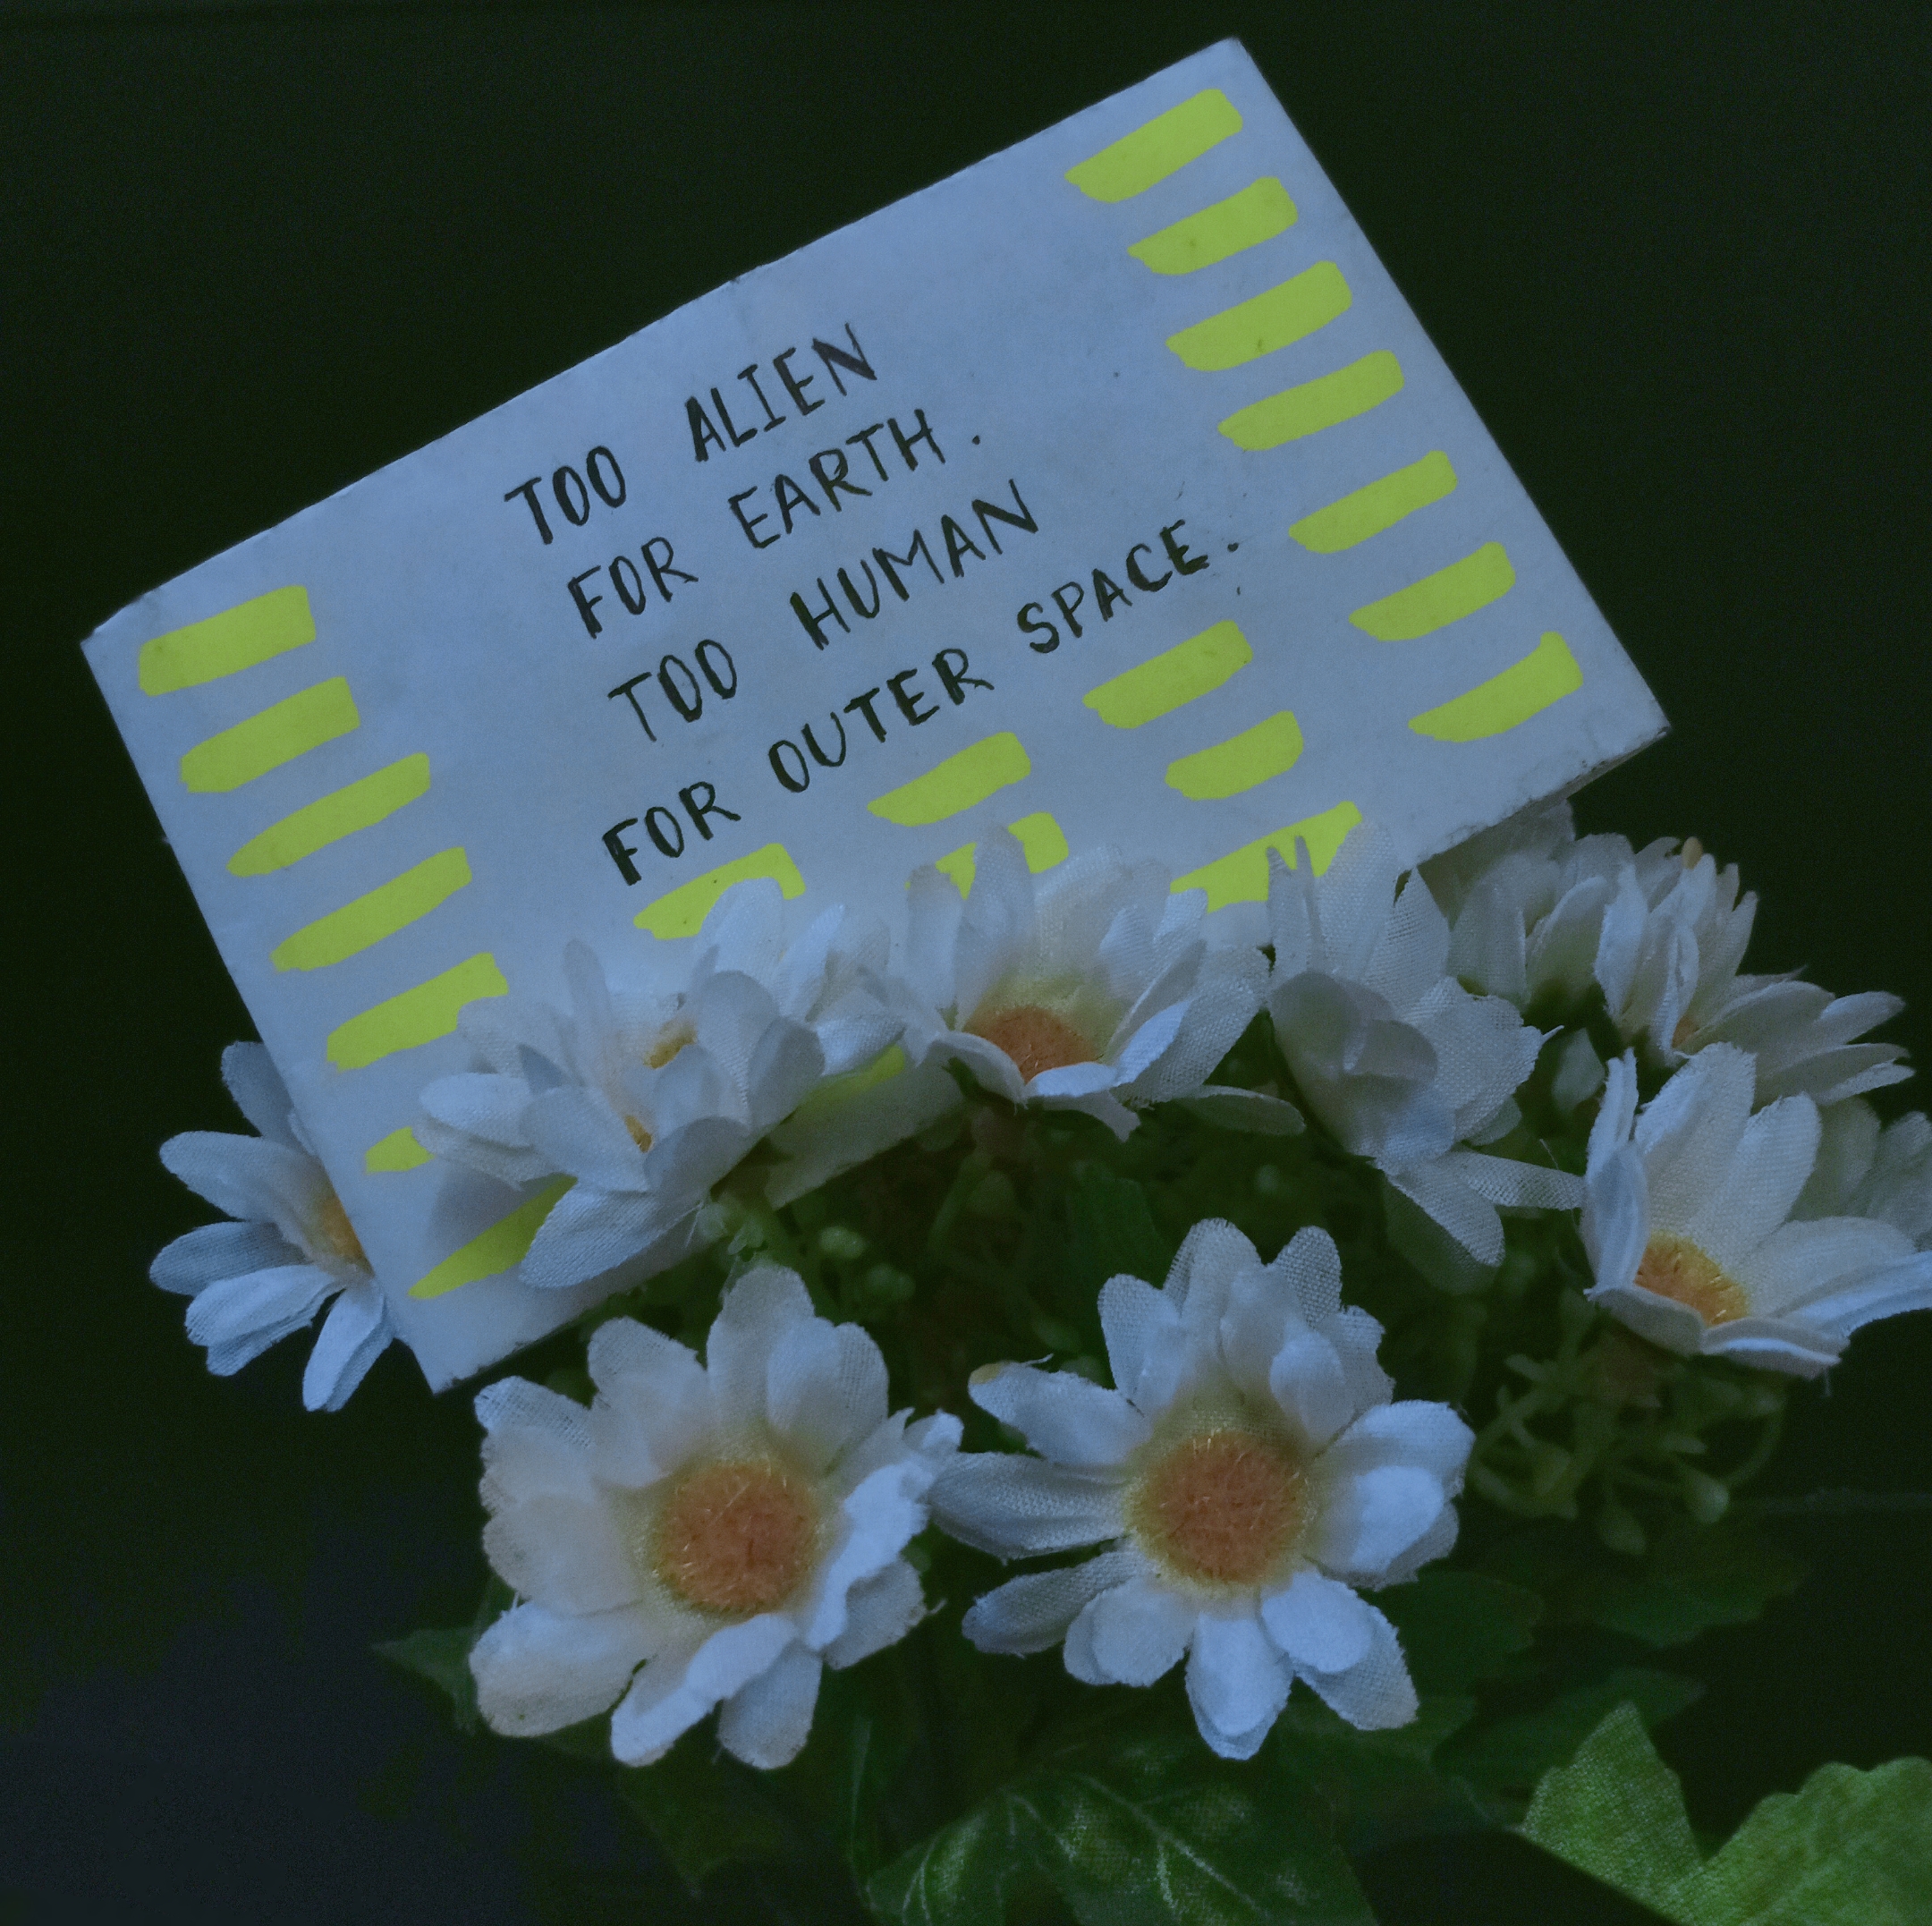 TOO ALIEN
FOR EARTH.
TOO HUMAN
FOR OUTER SPACE.